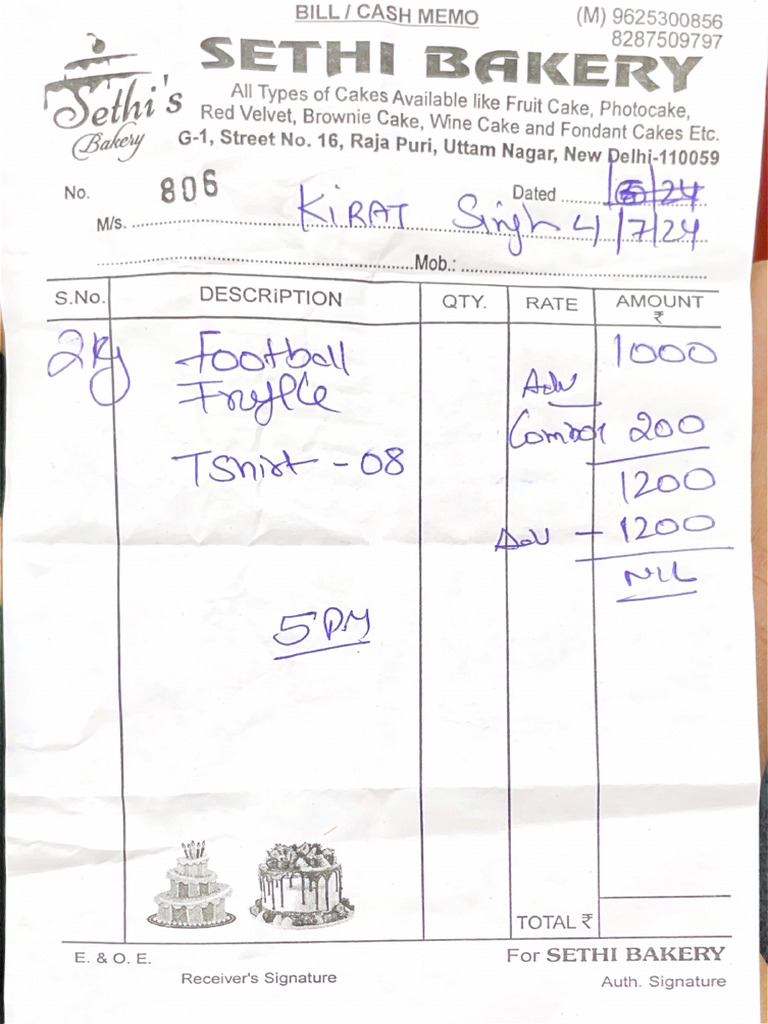 BILL / CASH MEMO
(M) 9625300856
8287509797
Sethi's
Bakery
SETHI BAKERY
All Types of Cakes Available like Fruit Cake, Photocake,
Red Velvet, Brownie Cake, Wine Cake and Fondant Cakes Etc.
G-1, Street No. 16, Raja Puri, Uttam Nagar, New Delhi-110059
No. 806
Dated
M/s. KIRAT Singh 4/7/24
Mob.:
S.No. DESCRiPTION QTY. RATE AMOUNT
₹
2kg Football 1000
Adv
Combor 200
TShirt - 08
1200
Adv - 1200
NIL
5 PM
TOTAL ₹
E. & O. E.
For SETHI BAKERY
Receiver's Signature
Auth. Signature